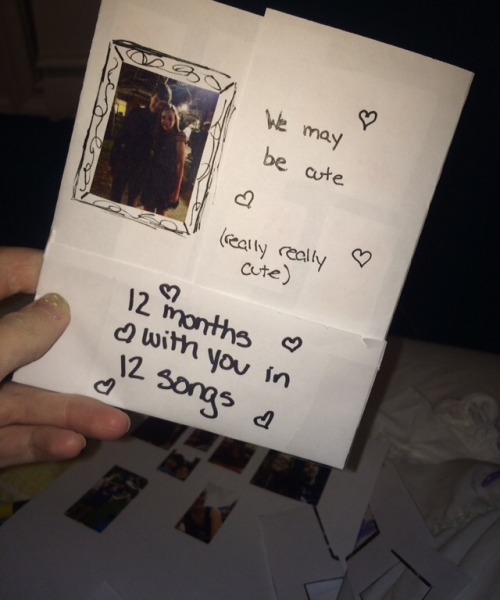 We may
be cute
(really really
cute)
12 months
with you in
12 songs